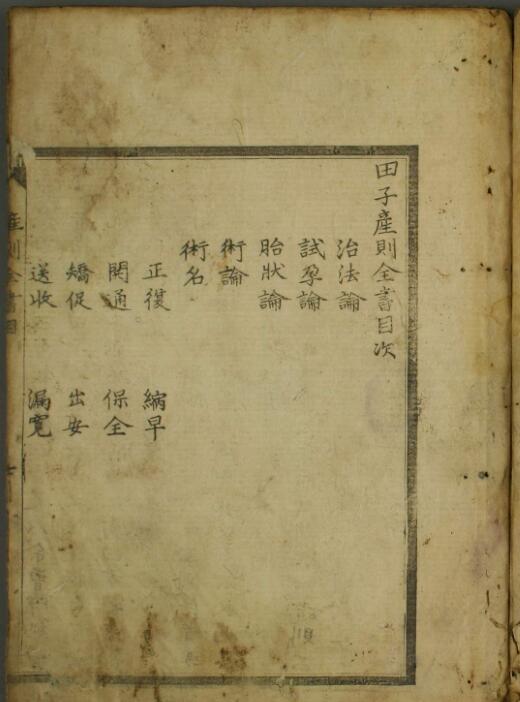 田子產則全書目次
治法論
試孕論
胎狀論
術論
術名
正復 縮早
開通 保全
矯促 出安
送收 漏寬
產則全書目